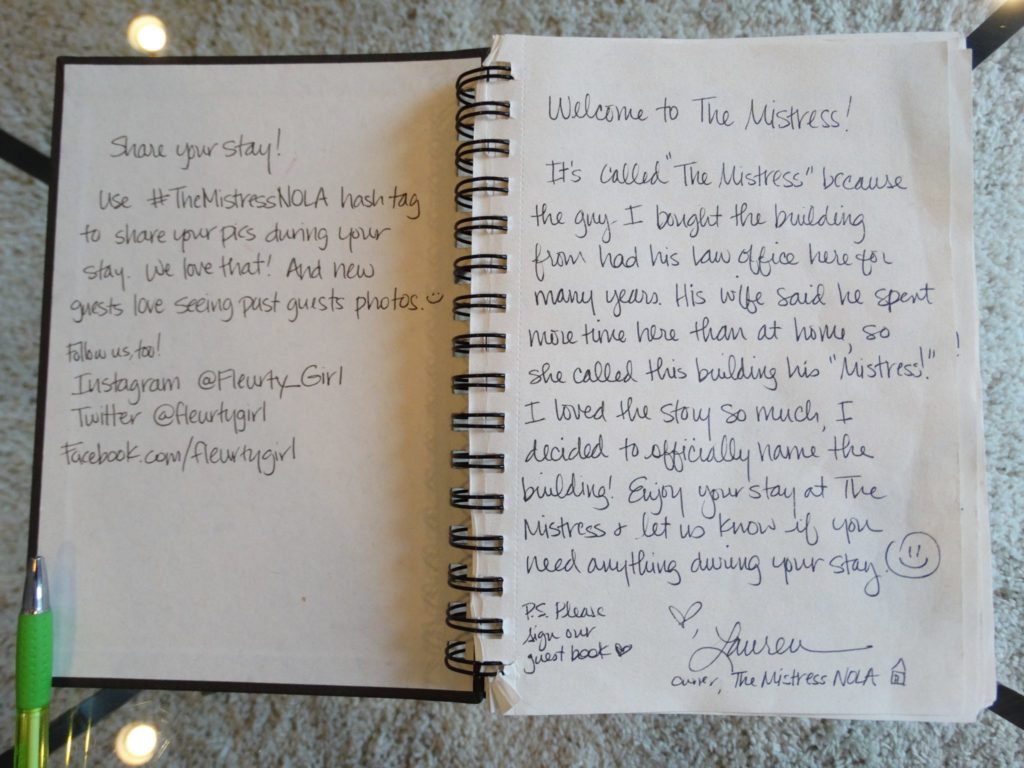 Share your stay!
Use #TheMistressNOLA hash tag
to share your pics during your
stay. We love that! And new
guests love seeing past guests photos.
Follow us, too!
Instagram @Fleurty_Girl
Twitter @fleurtygirl
Facebook.com/fleurtygirl
Welcome to The Mistress!
It's called "The Mistress" because
the guy I bought the building
from had his law office here for
many years. His wife said he spent
more time here than at home, so
she called this building his "Mistress!" !
I loved the story so much, I
decided to officially name the
building! Enjoy your stay at The
Mistress & let us know if you
need anything during your stay.
P.S. Please
sign our
guest book
Lauren
owner, The Mistress NOLA